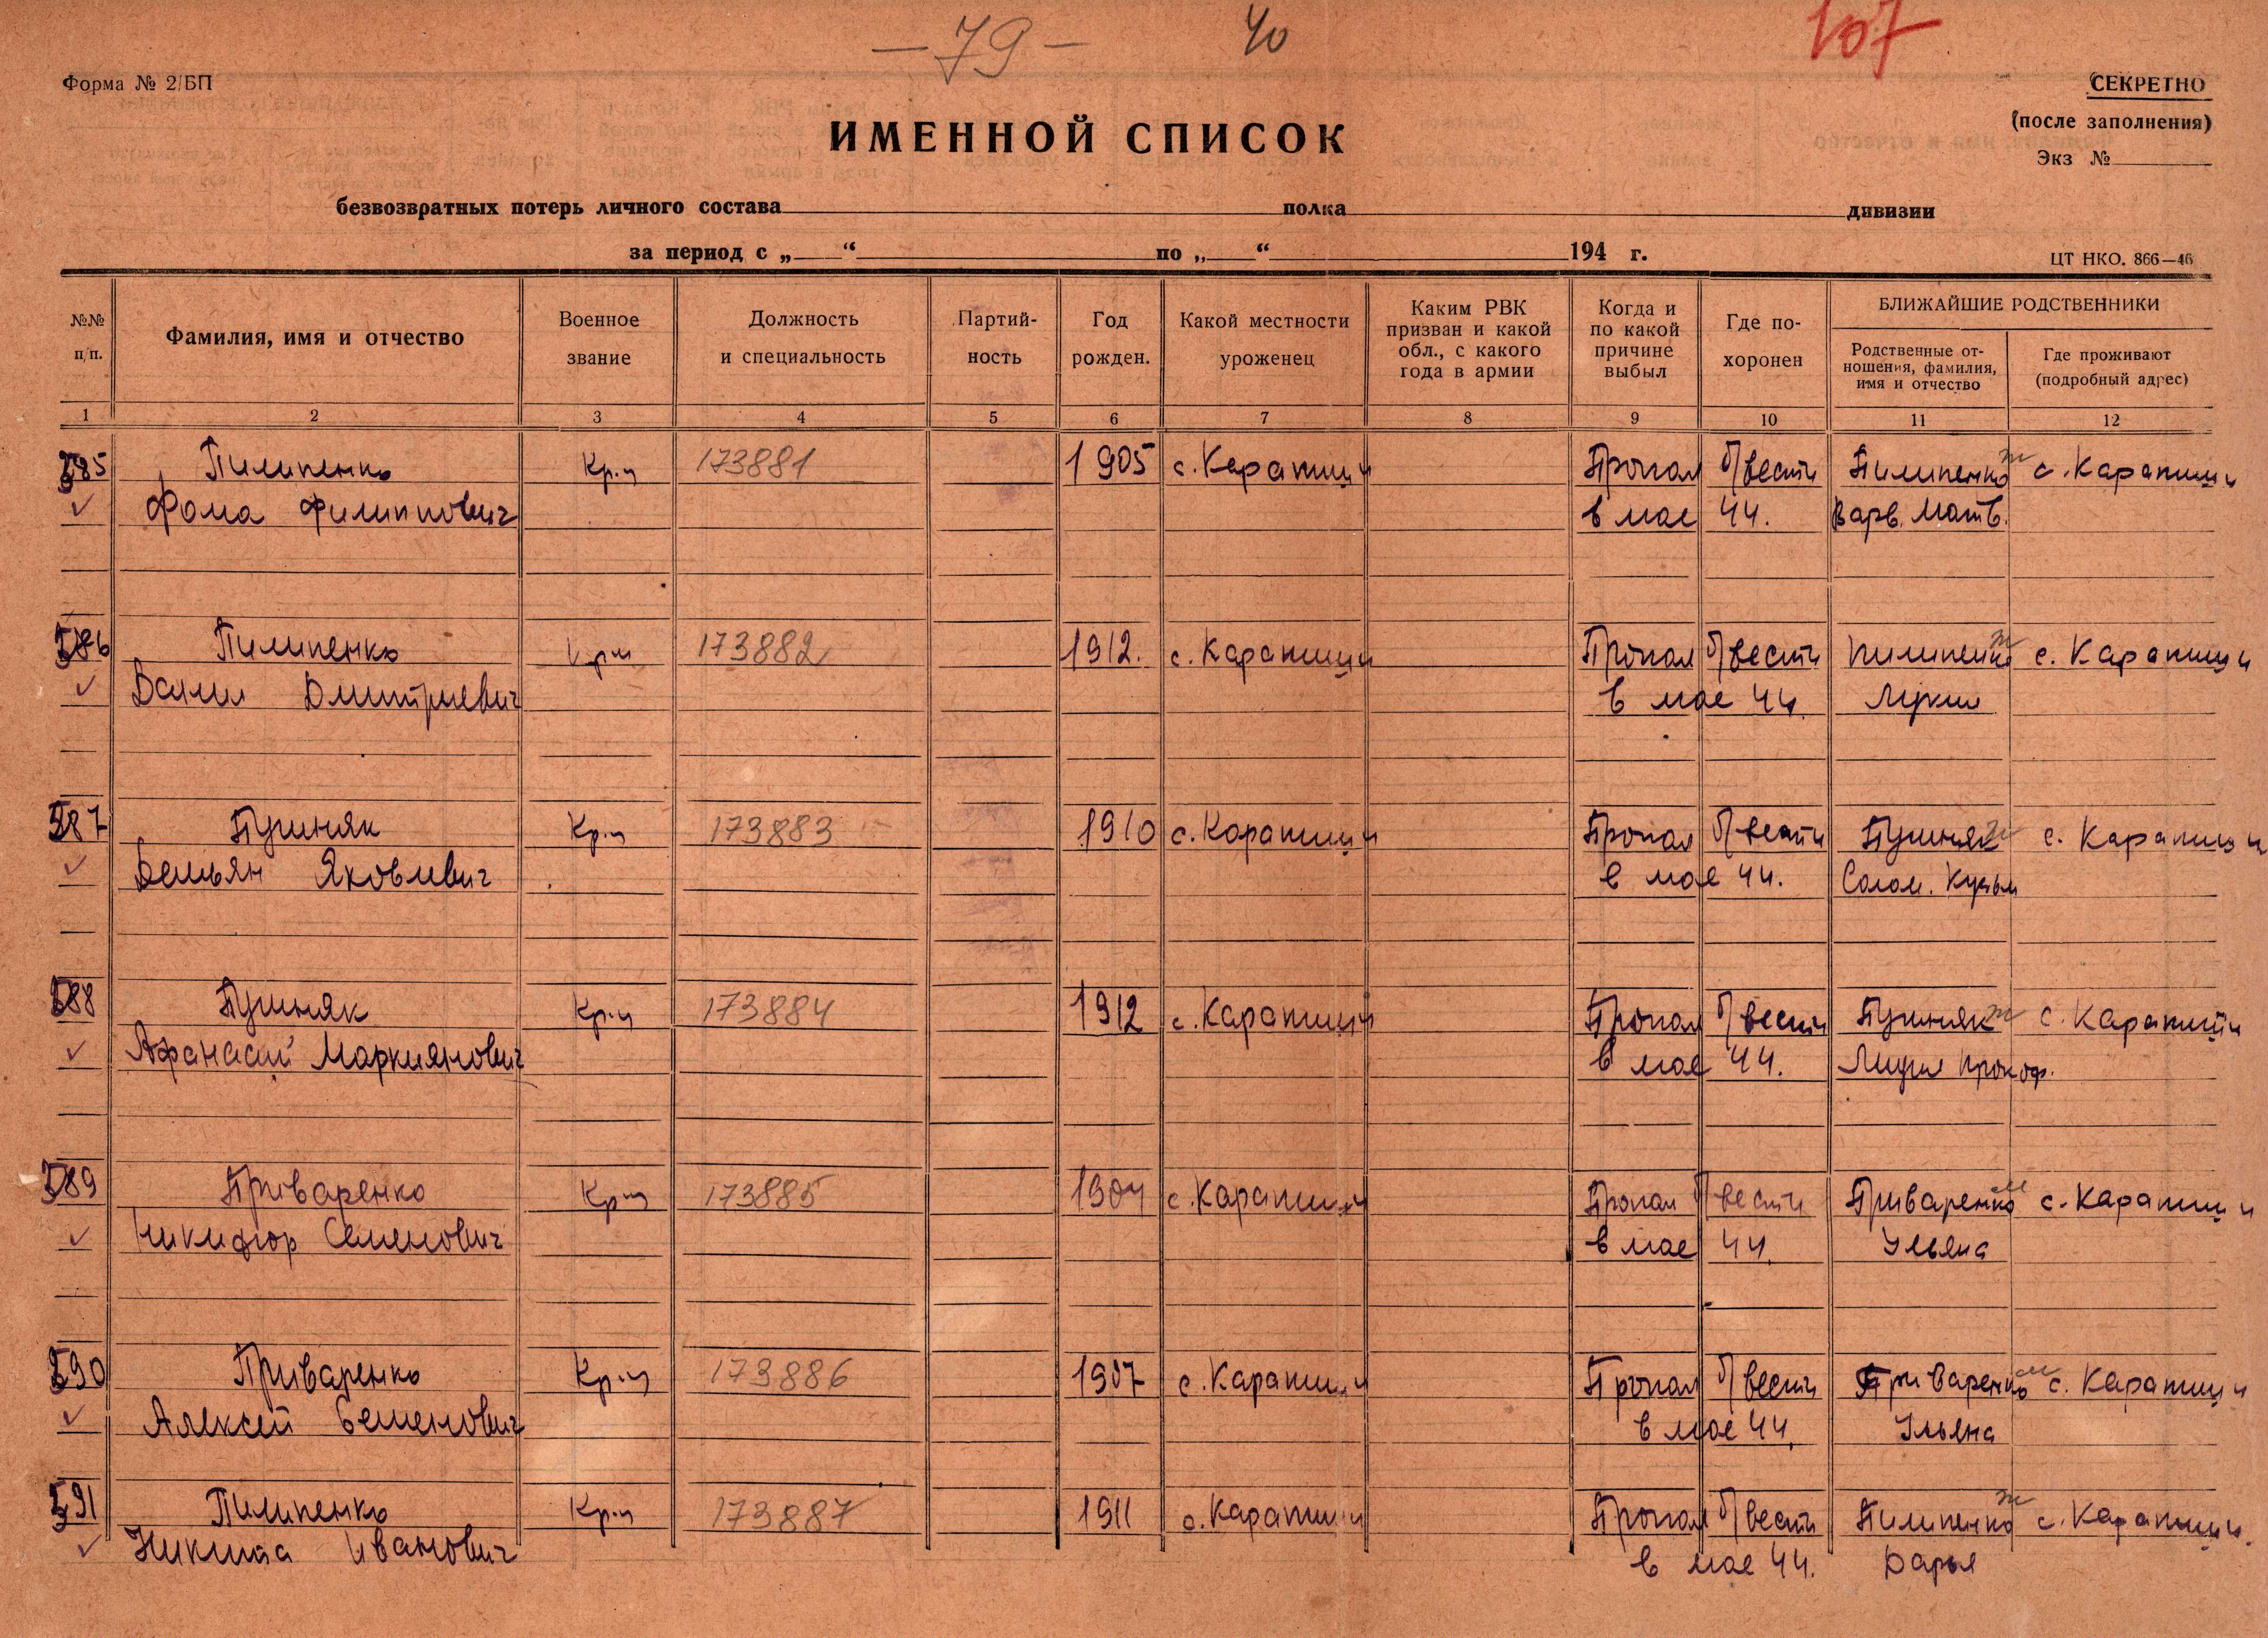 - 79 - 40 107
Форма № 2/БП
СЕКРЕТНО
(после заполнения)
Экз №
ИМЕННОЙ СПИСОК
безвозвратных потерь личного состава полка дивизии
за период с „ “ по „ “ 194 г.
ЦТ НКО. 866—46
№№ п/п.
Фамилия, имя и отчество
Военное звание
Должность и специальность
Партий- ность
Год рожден.
Какой местности уроженец
Каким РВК призван и какой обл., с какого года в армии
Когда и по какой причине выбыл
Где по- хоронен
БЛИЖАЙШИЕ РОДСТВЕННИКИ
Родственные от- ношения, фамилия, имя и отчество
Где проживают (подробный адрес)
1 2 3 4 5 6 7 8 9 10 11 12
585 Пилипенко Кр-ц 173881 1905 с. Карапиши Пропал б/вести Пилипенко ж с. Карапиши
Фома Филиппович в мае 44. Варв. Матв.
586 Пилипенко Кр-ц 173882 1912. с. Карапиши Пропал б/вести Пилипенко ж с. Карапиши
Данил Дмитриевич в мае 44.
587 Пушняк Кр-ц 173883 1910 с. Карапиши Пропал б/вести Пушняк ж с. Карапиши
Демьян Яковлевич в мае 44. Солом. Кузьм
588 Пушняк Кр-ц 173884 1912 с. Карапиши Пропал б/вести Пушняк ж с. Карапиши
Афанасий Маркиянович в мае 44. Лидия Прокоф.
589 Приваренко Кр-ц 173885 1904 с. Карапиши Пропал б/вести Приваренко м с. Карапиши
Никифор Семенович в мае 44. Ульяна
590 Приваренко Кр-ц 173886 1907 с. Карапиши Пропал б/вести Приваренко м с. Карапиши
Алексей Семенович в мае 44. Ульяна
591 Пилипенко Кр-ц 173887 1911 с. Карапиши Пропал б/вести Пилипенко ж с. Карапиши.
Никита Иванович в мае 44. Дарья